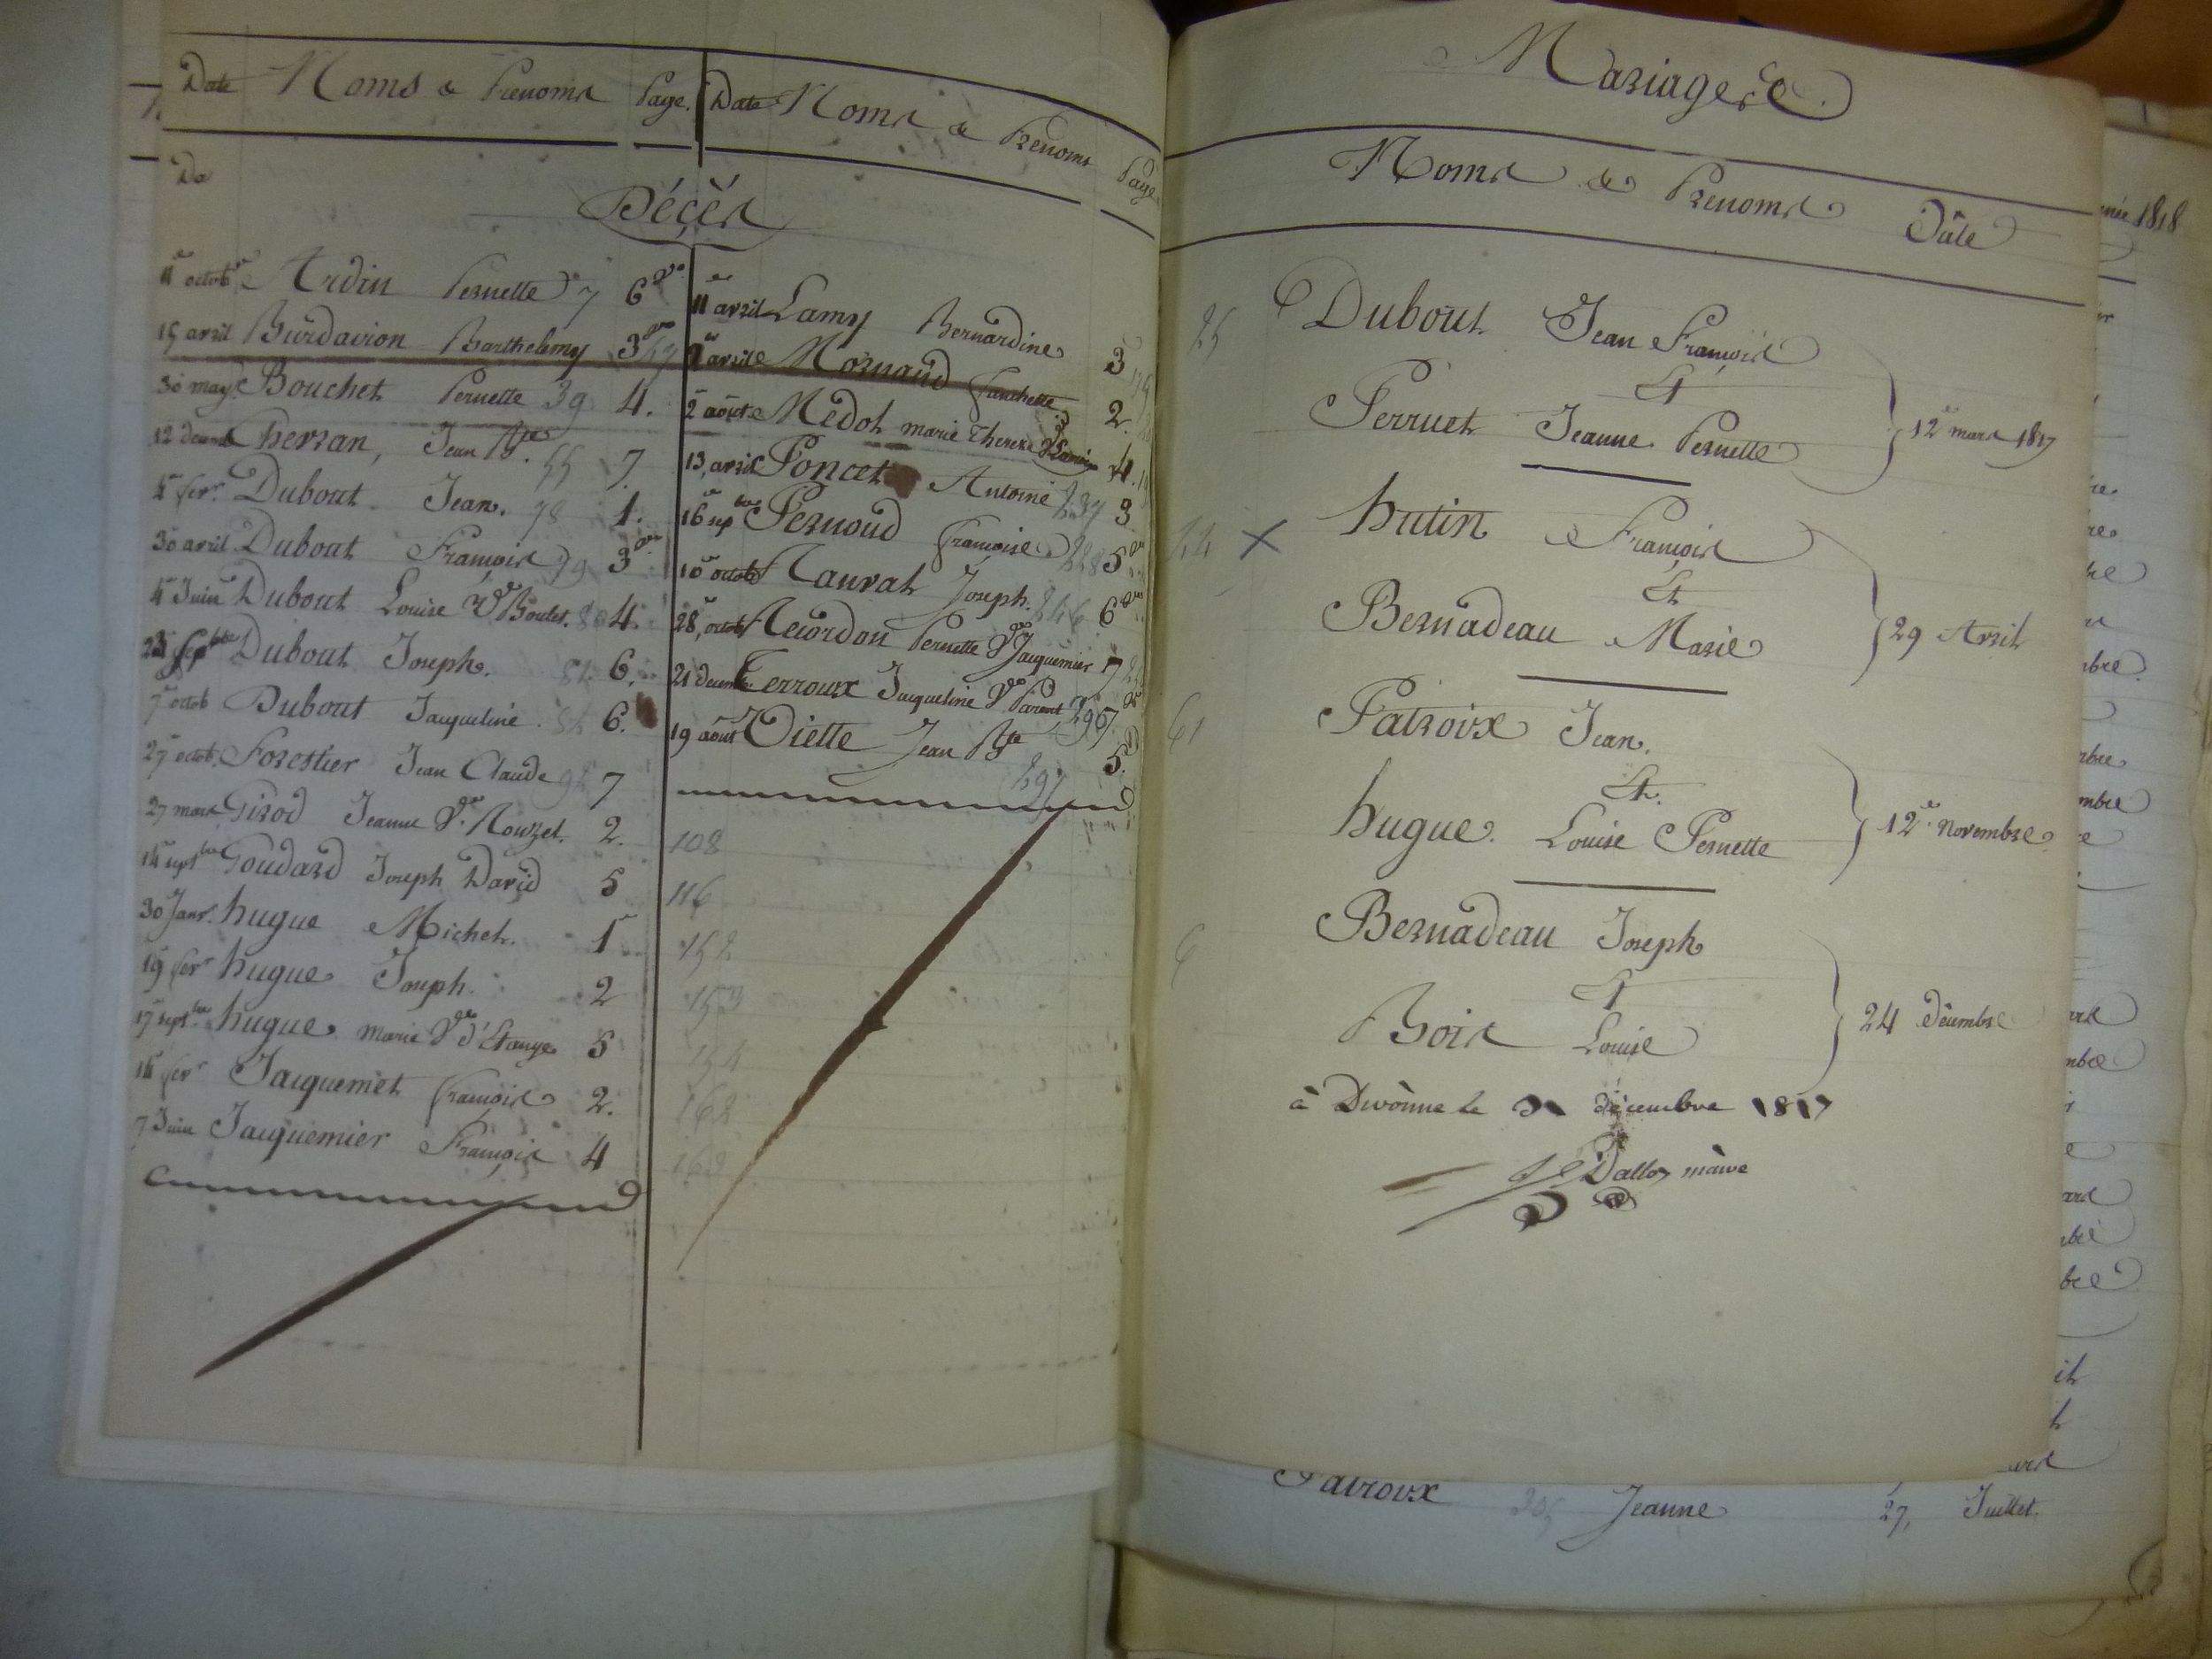 Date Noms & Prenoms Page.
Do
Décès
octobre Ardin Pernette 7 6
15 avril Burdavion Barthelemy 3
30 may Bouchet Pernette 39 4.
12 Chersan, Jean Bte 55 7.
fer. Dubout Jean. 78 1.
30 avril Dubout François 79 3
4 Juin Dubout Louise Ve Boulet. 80 4.
Dubout Joseph. 81 6.
7 octob Dubout Jaqueline. 82 6.
27 octob. Forestier Jean Claude 7
27 mars Girod Jeanne Ve Rouzet. 2.
14 septbre Goudard Joseph David 5
30 Janr. hugue Michel. 1
19 fer hugue Joseph. 2
17 septbre hugue Marie Ve d'Etange 5
14 fer Jacquemet François 2.
7 Juin Jacquemier François 4
Date Noms & Prenoms Page
11 avril Lamy Bernardine 3
avril Mornand Fanchette 2.
2 août Medot marie Therese 4.
13, avril Poncet Antoine 237 3
16 sepbre Pernoud françoise 5
10 octob Raurat Joseph. 246 6
28, octob Reverdon Pernette Ve Jacquemier 7
21 Terroux Jacqueline Ve Parent 7
19 août Viette Jean Bte 5.
297
108
116
152
153
154
162
163
Mariages.
Noms & Prenoms Date
Dubout Jean François
Et
Perruet Jeanne Pernette
12 mars 1817
× hutin François
Et
Bernadeau Marie
29 Avril
61 Patroix Jean.
Et.
hugue. Louise Pernette
12e Novembre.
Bernadeau Joseph
Et
Bois Louise
24 Décembre
à Divonne le 31 décembre 1817
Dalloz maire
1818
Patroix Jeanne 27, Juillet.